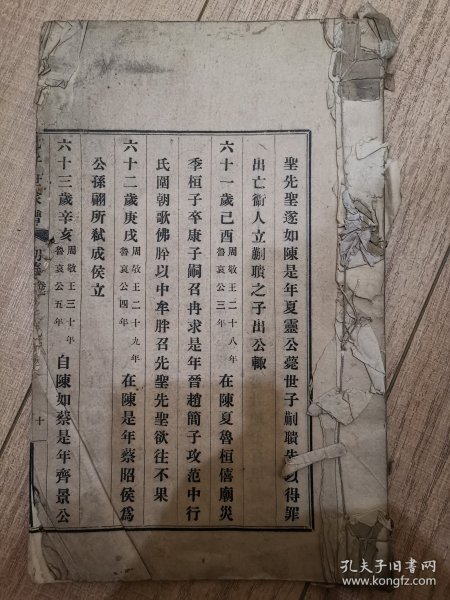 聖先聖遂如陳是年夏靈公薨世子蒯聵先以得罪
出亡衛人立蒯聵之子出公輙
六十一歲己酉 周敬王二十八年 魯哀公三年 在陳夏魯桓僖廟災
季桓子卒康子嗣召冉求是年晉趙簡子攻范中行
氏圍朝歌佛肸以中牟畔召先聖先聖欲往不果
六十二歲庚戌 周敬王二十九年 魯哀公四年 在陳是年蔡昭侯爲
公孫翩所弒成侯立
六十三歲辛亥 周敬王三十年 魯哀公五年 自陳如蔡是年齊景公
初集 卷
十
孔夫子旧書网
www.kongfz.com